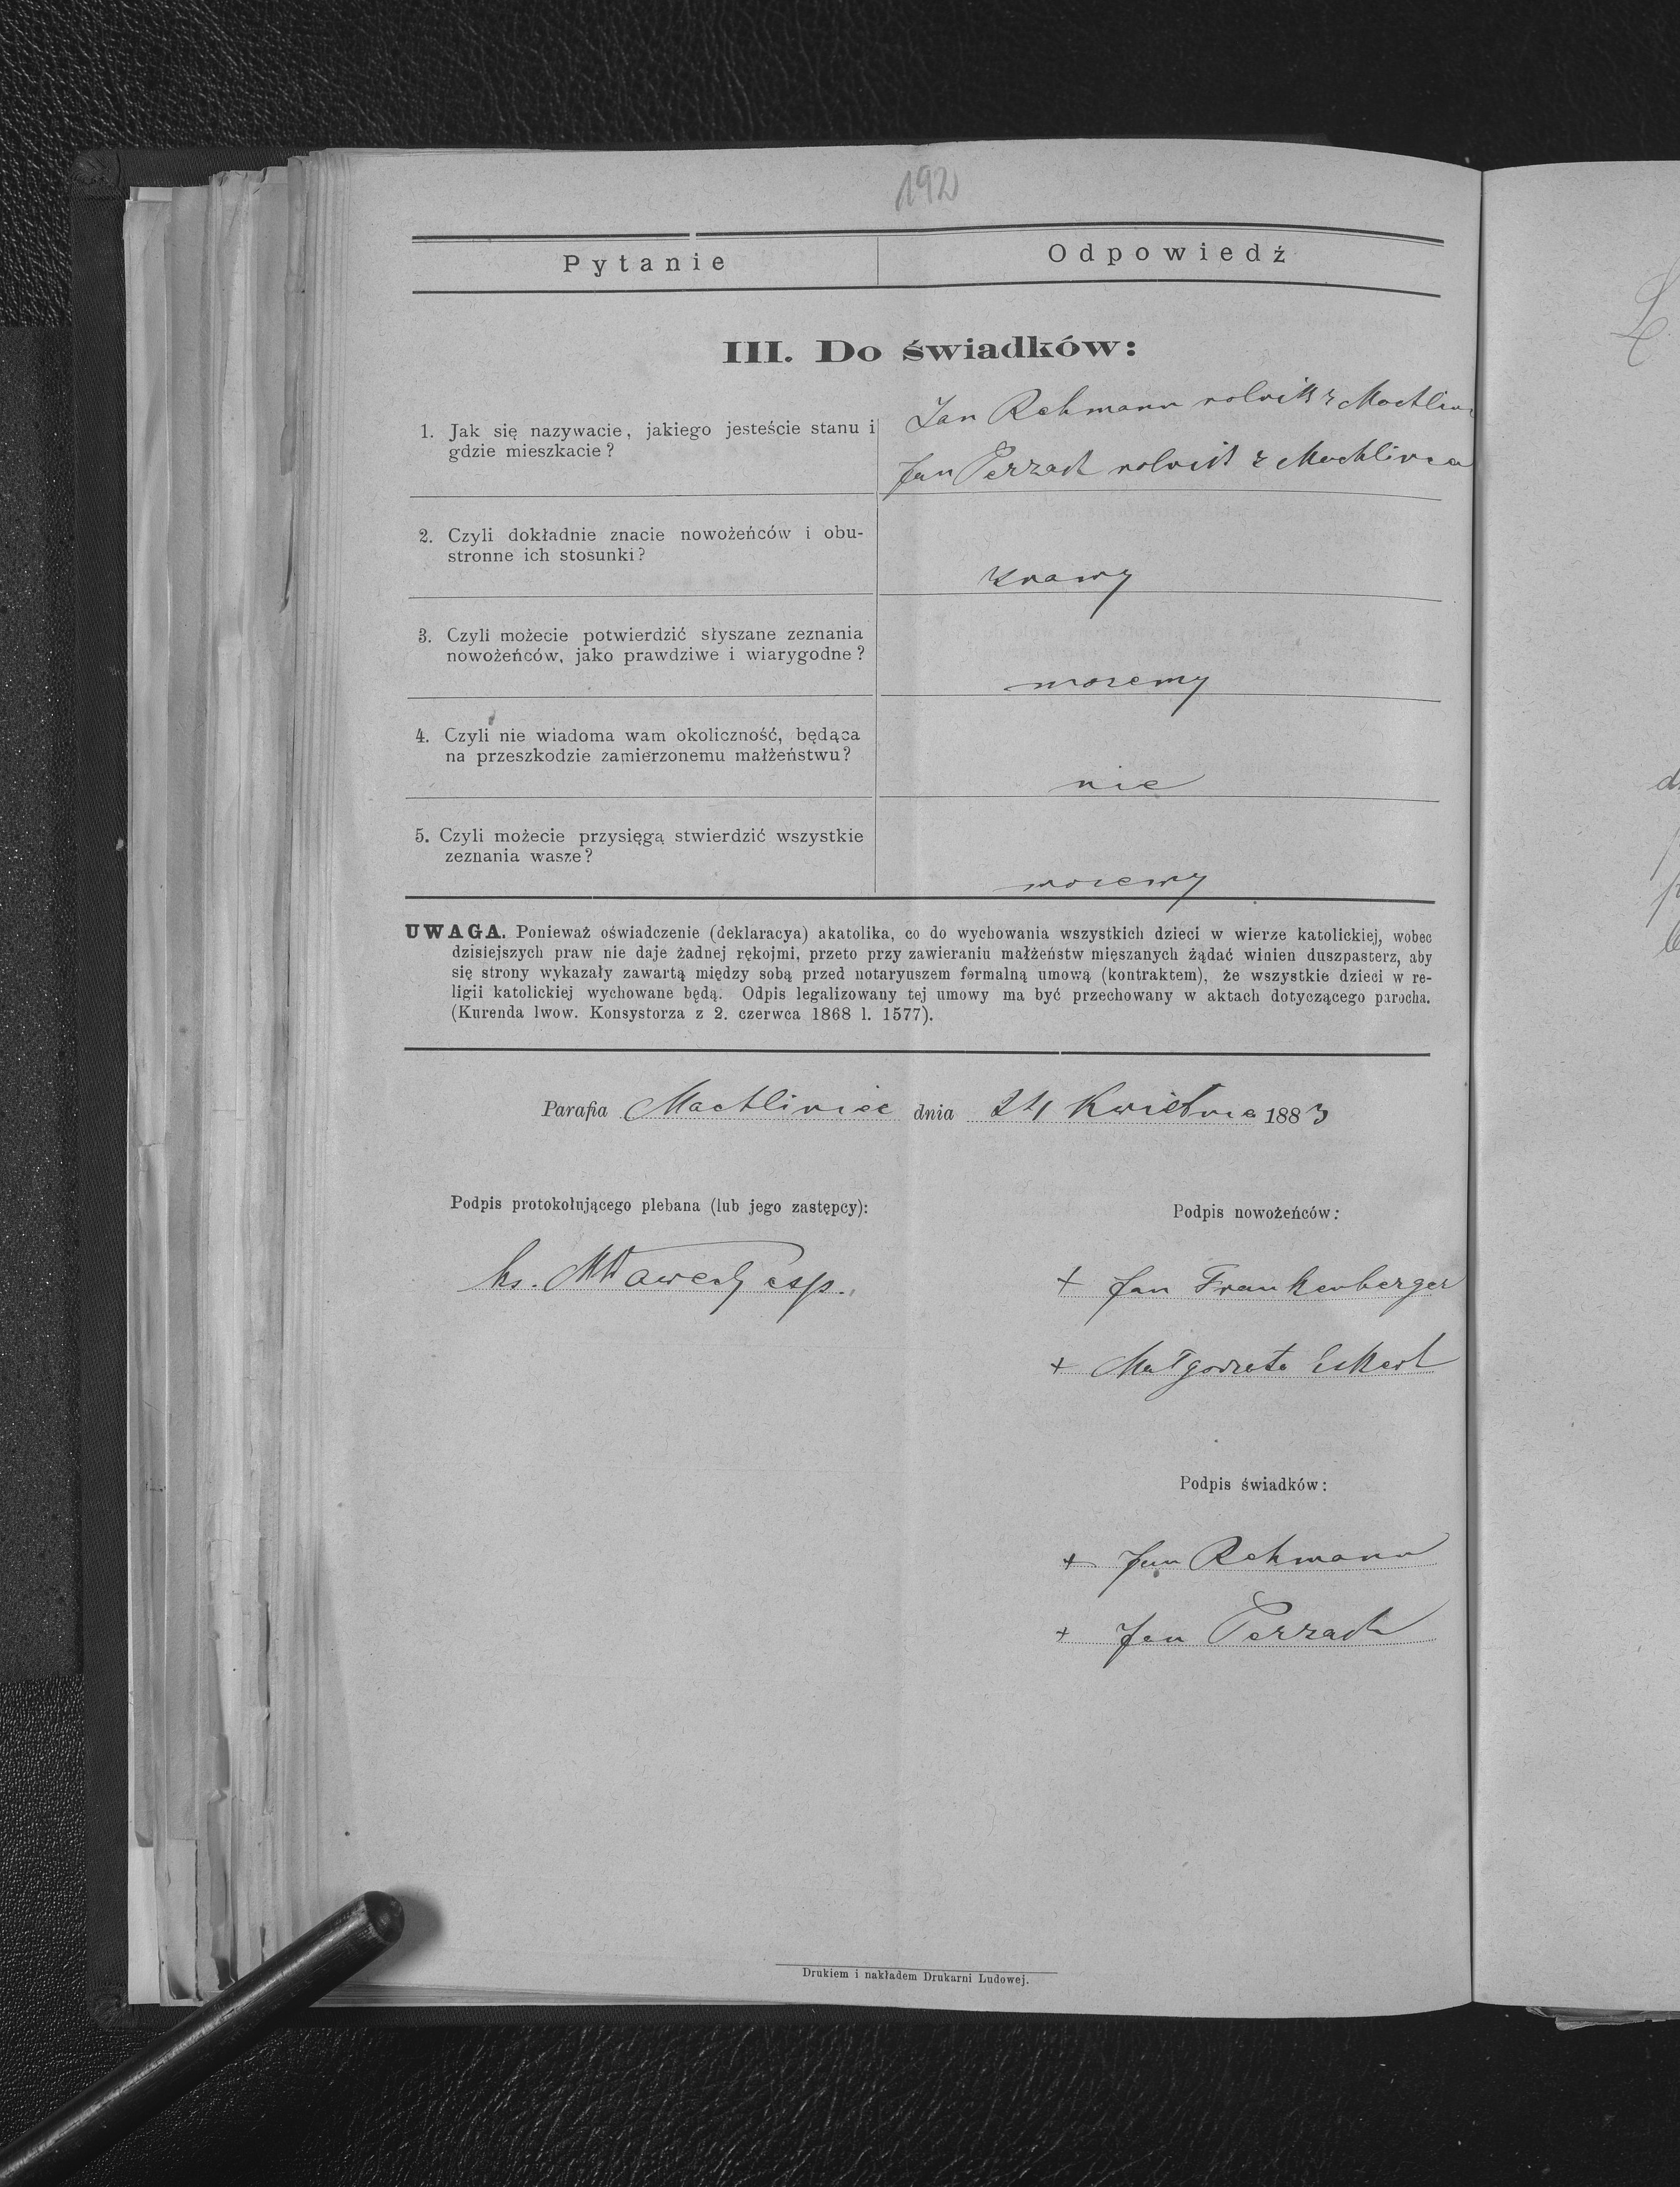 192
Pytanie
Odpowiedź
III. Do świadków:
1. Jak się nazywacie, jakiego jesteście stanu i
gdzie mieszkacie?
Jan Rehmann rolnik z Machlin
Jan Perzach rolnik z Machlinca
2. Czyli dokładnie znacie nowożeńców i obu-
stronne ich stosunki?
znamy
3. Czyli możecie potwierdzić słyszane zeznania
nowożeńców, jako prawdziwe i wiarygodne?
mozemy
4. Czyli nie wiadoma wam okoliczność, będąca
na przeszkodzie zamierzonemu małżeństwu?
nie
5. Czyli możecie przysięgą stwierdzić wszystkie
zeznania wasze?
mozemy
UWAGA. Ponieważ oświadczenie (deklaracya) akatolika, co do wychowania wszystkich dzieci w wierze katolickiej, wobec
dzisiejszych praw nie daje żadnej rękojmi, przeto przy zawieraniu małżeństw mięszanych żądać winien duszpasterz, aby
się strony wykazały zawartą między sobą przed notaryuszem formalną umową (kontraktem), że wszystkie dzieci w re-
ligii katolickiej wychowane będą. Odpis legalizowany tej umowy ma być przechowany w aktach dotyczącego parocha.
(Kurenda lwow. Konsystorza z 2. czerwca 1868 l. 1577).
Parafia Machliniec dnia 24 Kwietnia 1883
Podpis protokołującego plebana (lub jego zastępcy):
ks. esp.
Podpis nowożeńców:
+ Jan Frankenberger
+ Małgorzata
Podpis świadków:
+ Jan Rehmann
+ Jan Perzach
Drukiem i nakładem Drukarni Ludowej.